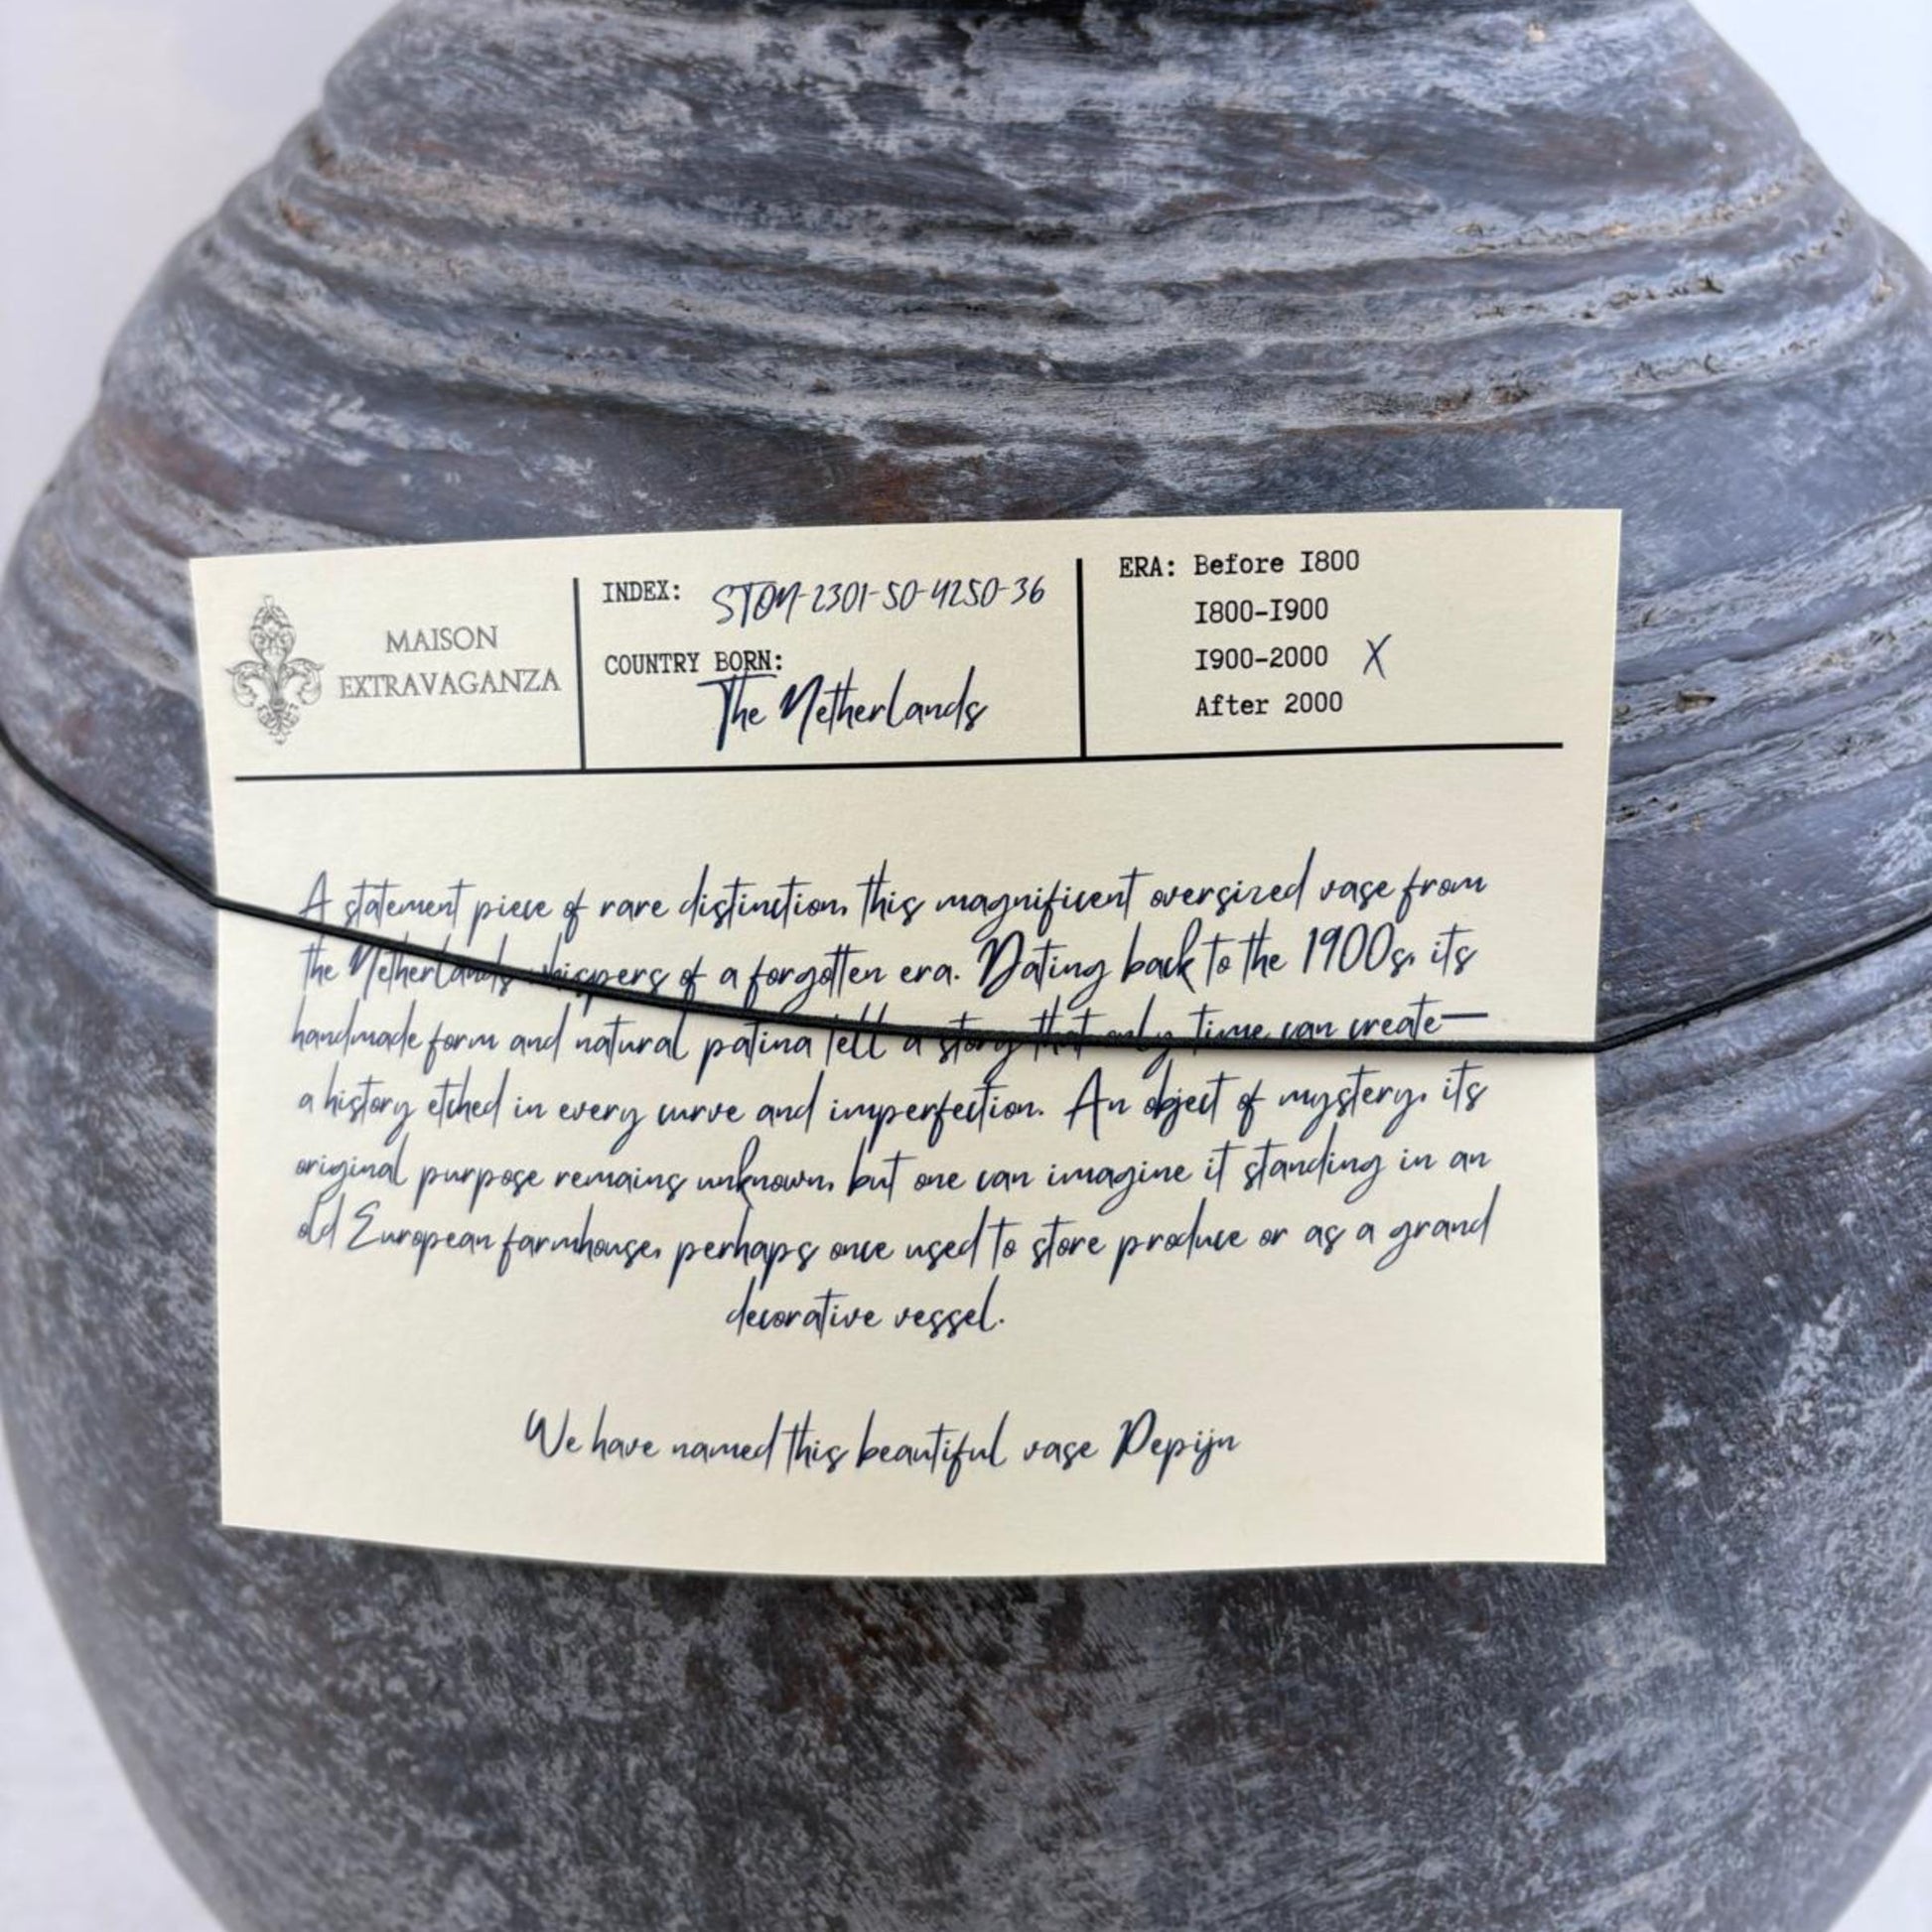 MAISON
EXTRAVAGANZA
INDEX: STON-2301-50-4250-36
COUNTRY BORN:
The Netherlands
ERA: Before I800
I800-I900
I900-2000 X
After 2000
A statement piece of rare distinction, this magnificent oversized vase from
the Netherlands whispers of a forgotten era. Dating back to the 1900s, its
handmade form and natural patina tell a story that only time can create—
a history etched in every curve and imperfection. An object of mystery, its
original purpose remains unknown, but one can imagine it standing in an
old European farmhouse, perhaps once used to store produce or as a grand
decorative vessel.
We have named this beautiful vase Pepijn